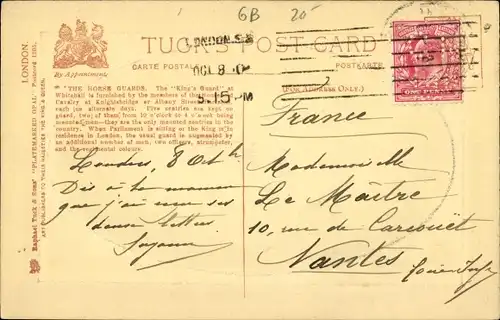 GB 20
TUCK'S POST CARD
CARTE POSTALE
POSTKARTE
(FOR ADDRESS ONLY.)
By Appointment
LONDON. S.E
OCT 8
5.15 PM
ONE PENNY
"THE HORSE GUARDS. The "King's Guard" at
Whitehall is furnished by the members of the Household
Cavalry at Knightsbridge or Albany Street Barracks
each on alternate days. Five sentries are kept on
guard, two of them from 10 o'clock to 4 o'clock being
mounted men—they are the only mounted sentries in the
country. When Parliament is sitting or the King is
in residence in London, the usual guard is augmented by
an additional number of men, two officers, a trumpeter,
and the regimental colour.
LONDON.
Raphael Tuck & Sons' "PLATEMARKED OPAL" Postcard
ART PUBLISHERS TO THEIR MAJESTIES THE KING & QUEEN.
Londres, 8 Oct
Dis à ta maman
que j'ai reçu ses
deux lettres
Suzanne
France
Mademoiselle
Le Maître
10, rue de Carcouët
Nantes